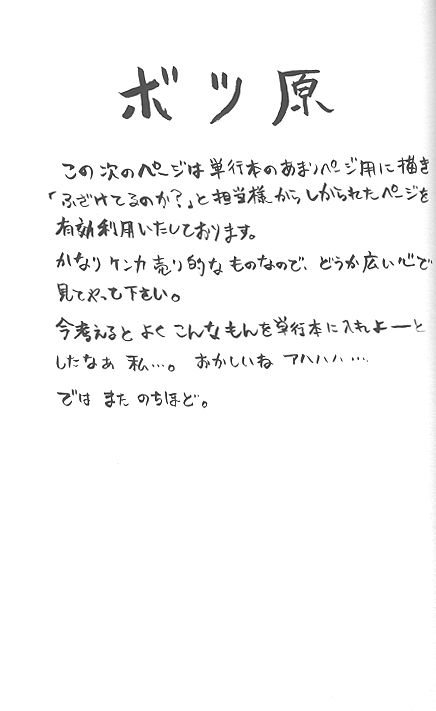 ボツ原
この次のページは単行本のあまりページ用に描き
「ふざけてるのか?」と担当様からしかられたページを
有効利用いたしております。
かなりケンカ売り的なものなので、どうか広い心で
見てやって下さい。
今考えるとよくこんなもんを単行本に入れよーと
したなぁ 私…。 おかしいね アハハハ…
では また のちほど。